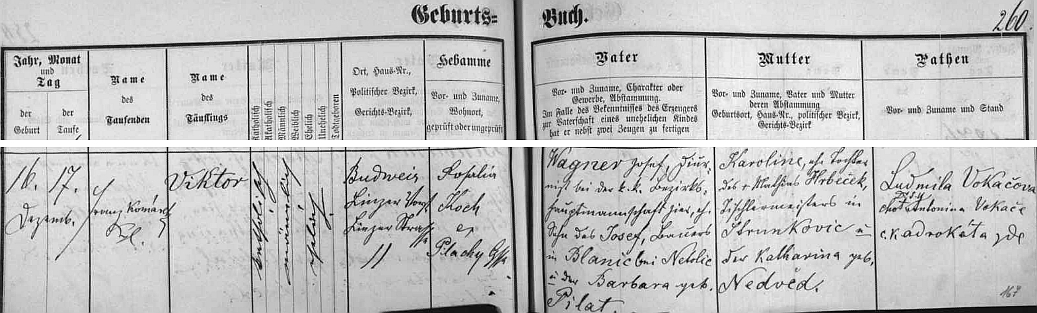 Geburts=
Buch.
260.
Jahr, Monat
und
Tag
der
Geburt
der
Taufe
Name
des
Taufenden
Name
des
Täuflings
Katholisch
Akatholisch
Männlich
Weiblich
Ehelich
Unehelich
Todtgeboren
Ort, Haus-Nr.,
Politischer Bezirk,
Gerichts-Bezirk.
Hebamme
Vor- und Zuname,
Wohnort,
geprüft oder ungeprüft
Vater
Vor- und Zuname, Charakter oder
Gewerbe, Abstammung.
Im Falle des Bekenntnisses des Erzeugers
zur Vaterschaft eines unehelichen Kindes
hat er nebst zwei Zeugen zu fertigen
Mutter
Vor- und Zuname, Vater und Mutter
deren Abstammung
Geburtsort, Haus-Nr., politischer Bezirk,
Gerichts-Bezirk
Pathen
Vor- und Zuname und Stand
16. 17.
Dezemb.
Franz Komárek
Viktor
katholisch
männlich
ehelich
Budweis
Linzer Vorst
Linzer Strasse
11
Rosalia
Koch
Plachy Gsse
Wagner Josef, Diur-
nist bei der k. k. Bezirks-
hauptmannschaft hier, eh.
Sohn des Josef, Bauers
in Blanič bei Netolic
u der Barbara geb.
Pilat.
Karoline, ehe Tochter
des + Mathias Hrbeček,
Tischlermeisters in
Strunkovic u
der Katharina geb.
Nedvěd.
Ludmila Vokačova
choť Antonína Vokače
c. k. adrokáta zde
167